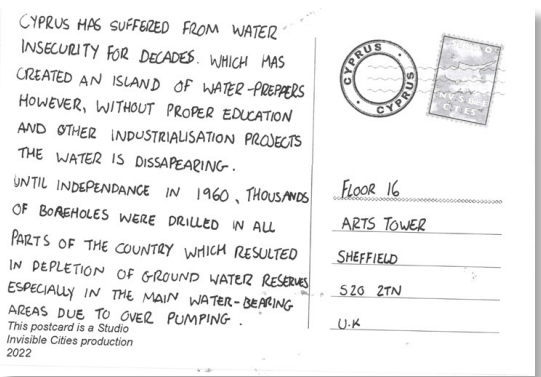 CYPRUS HAS SUFFERED FROM WATER
INSECURITY FOR DECADES. WHICH HAS
CREATED AN ISLAND OF WATER-PREPPERS
HOWEVER, WITHOUT PROPER EDUCATION
AND OTHER INDUSTRIALISATION PROJECTS
THE WATER IS DISSAPEARING.
UNTIL INDEPENDANCE IN 1960, THOUSANDS
OF BOREHOLES WERE DRILLED IN ALL
PARTS OF THE COUNTRY WHICH RESULTED
IN DEPLETION OF GROUND WATER RESERVES
ESPECIALLY IN THE MAIN WATER-BEARING
AREAS DUE TO OVER PUMPING.
This postcard is a Studio
Invisible Cities production
2022
CYPRUS
CYPRUS
INVISIBLE
CITIES
FLOOR 16
ARTS TOWER
SHEFFIELD
S20 2TN
U.K